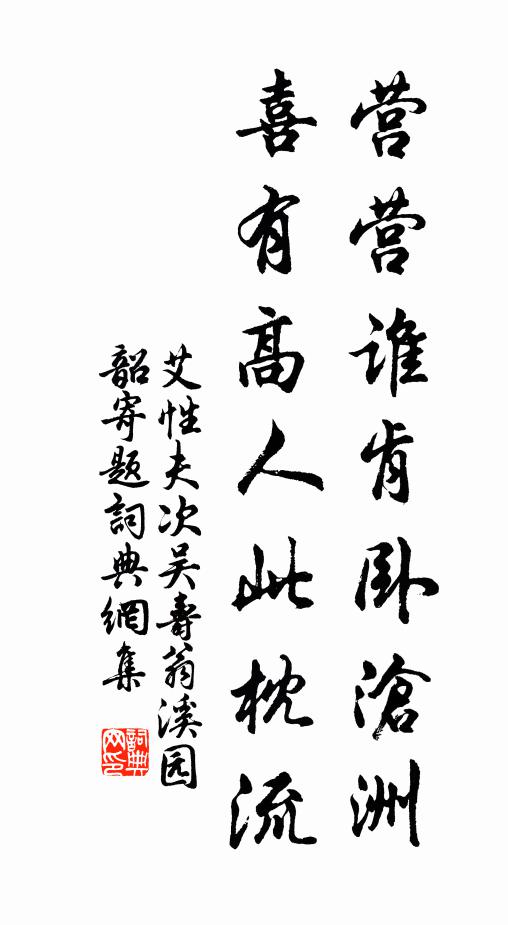 营营谁肯卧滄洲
喜有高人此枕流
艾性夫次吴壽翁溪园
韶寄题詞典網集
詞典
网印